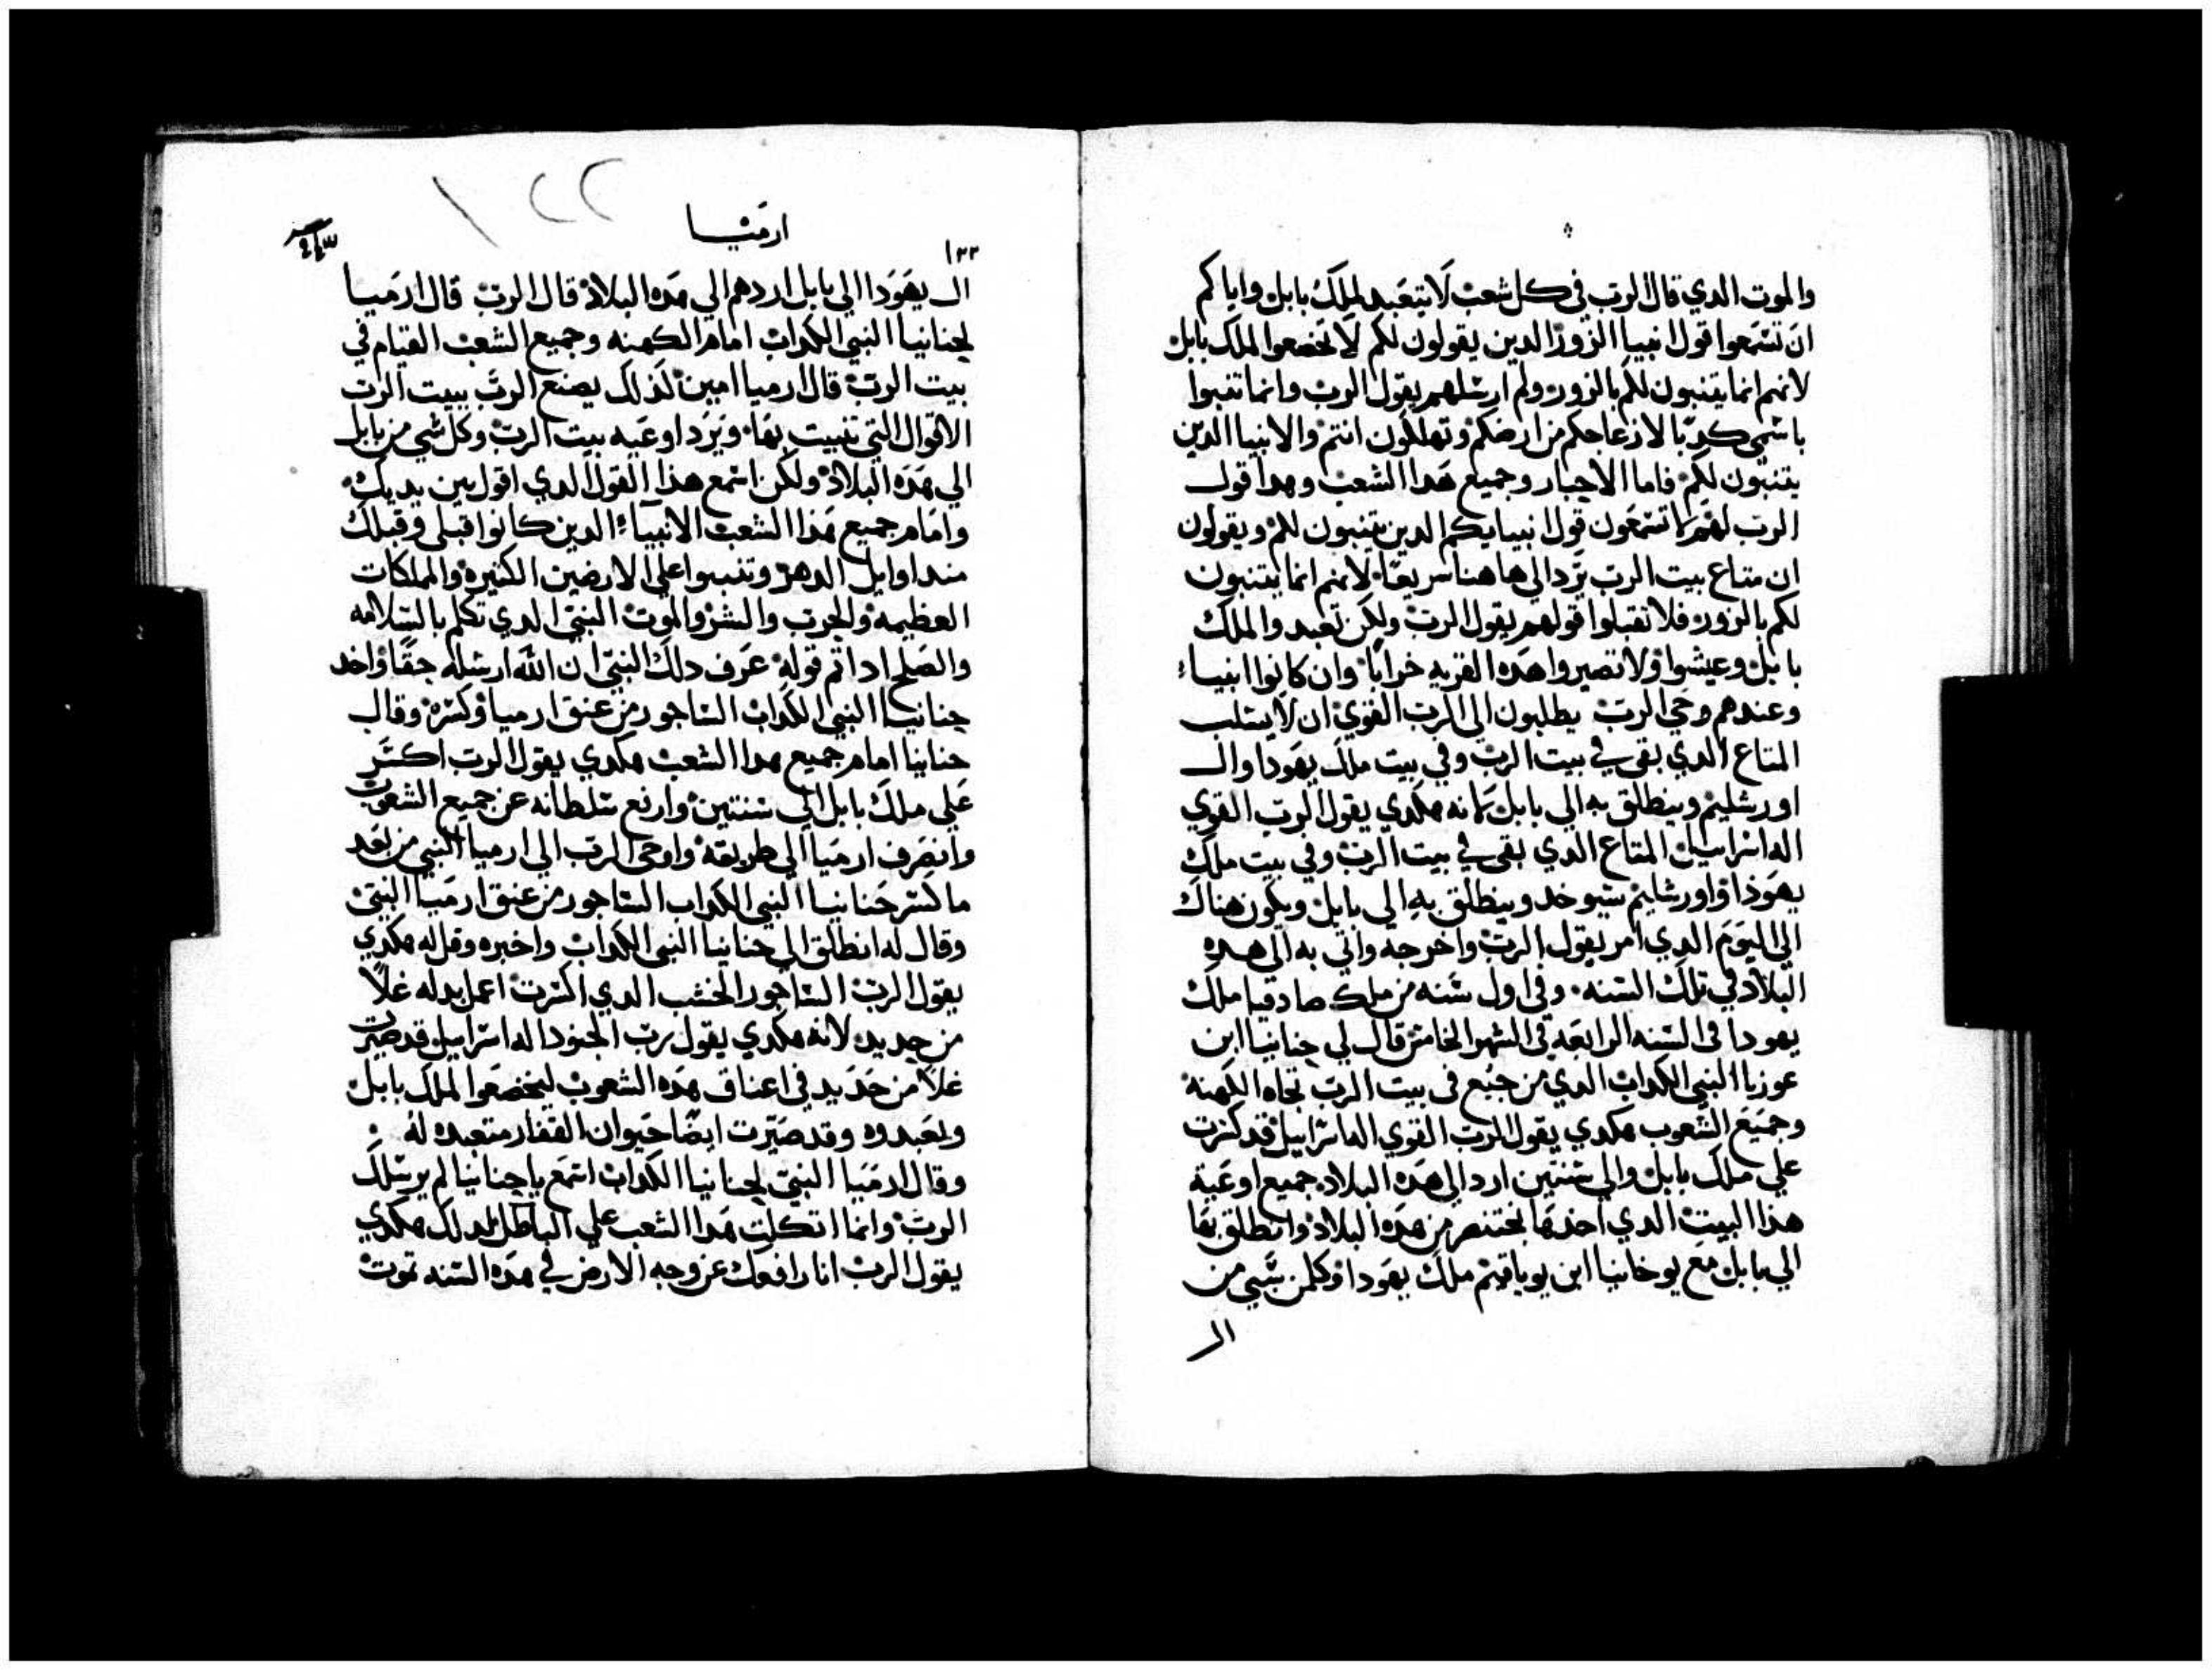 والموت الدي قال الرب في كل شعب لا يتعبد لملك بابل واياكم
ان تسمعوا قول انبيا الزور الدين يقولون لكم لا تخضعوا لملك بابل
لانهم انما يتنبون لكم بالزور ولم ارسلهم يقول الرب وانما تنبوا
باسمي كدبا لازعاجكم من ارضكم وتهلكون انتم والانبيا الدين
يتنبون لكم فاما الاحبار وجميع هدا الشعب وهدا قول
الرب لهم لا تسمعون قول انبيايكم الدين يتنبون لكم ويقولون
ان متاع بيت الرب يرد الى هاهنا سريعا لانهم انما يتنبون
لكم بالزور فلا تقبلوا قولهم يقول الرب ولكن تعبدوا لملك
بابل وعيشوا ولا تصيروا هده القريه خرابا وان كانوا انبياء
وعندهم وحي الرب يطلبون الى الرب القوي ان لا يسلب
المتاع الدي بقي في بيت الرب وفي بيت ملك يهودا وال
اورشليم وينطلق به الي بابل لانه هكدي يقول الرب القوي
اله اسراييل المتاع الدي بقي في بيت الرب وفي بيت ملك
يهودا واورشليم سيوخد وينطلق به الي بابل ويكون هناك
الي اليوم الدي امر يقول الرب واخرجه واتي به الى هده
البلاد في تلك السنه وفي اول سنه من ملك صادقيا ملك
يهودا في السنه الرابعه في الشهر الخامس قال لي حنانيا ابن
عوزيا النبي الكداب الدي من جبع في بيت الرب تجاه الكهنه
وجميع الشعوب هكدي يقول الرب القوي اله اسراييل قد كسرت
علي ملك بابل والي سنتين ارد الي هده البلاد جميع اوعية
هذا البيت الدي اخدها بختنصر من هده البلاد وانطلق بها
الي بابل مع يوخانيا ابن يوياقيم ملك يهودا وكلمن سبي من
ال
ارميا
١٢٢
١٣٣
ال يهودا الي بابل اردهم الي هده البلاد قال الرب قال ارميا
لحنانيا النبي الكداب امام الكهنه وجميع الشعب القيام في
بيت الرب قال ارميا امين لذلك يصنع الرب ببيت الرب
الاقوال التي تنبيت بها ويرد اوعيه بيت الرب وكل شي من بابل
الي هده البلاد ولكن اسمع هذا القول الدي اقول بين يديك
وامام جميع هذا الشعب الانبياء الدين كانوا قبلي وقبلك
مند اوايل الدهر وتنبوا علي الارضين الكثيره والمملكات
العظيمه والحرب والشر والموت النبي الدي تكلم بالسلامه
والصلح ادا تم قوله عرف دلك النبي ان الله ارسله حقا واخد
حنانيا النبي الكداب الساجور من عنق ارميا وكسره وقال
حنانيا امام جميع هدا الشعب هكدي يقول الرب اكسر
علي ملك بابل الي سنتين وارفع سلطانه عن جميع الشعوب
وانصرف ارميا الي طريقه واوحى الرب الي ارميا النبي من بعد
ما كسر حنانيا النبي الكداب الساجور من عنق ارميا النبي
وقال له انطلق الي حنانيا النبي الكداب واخبره وقل له هكدي
يقول الرب الساجور الخشب الدي اكسرت اعمل بدله غلا
من حديد لانه هكدي يقول رب الجنود اله اسراييل قد صيرت
غلا من حديد في اعناق هده الشعوب ليخضعوا لملك بابل
ولعبدوه وقد صيرت ايضا حيوان القفار متعبده له
وقال ارميا النبي لحنانيا الكداب اسمع يا حنانيا لم يرسلك
الرب وانما اتكلت هدا الشعب علي الباطل لدلك هكدي
يقول الرب انا رافعك عن وجه الارض في هده السنه تموت